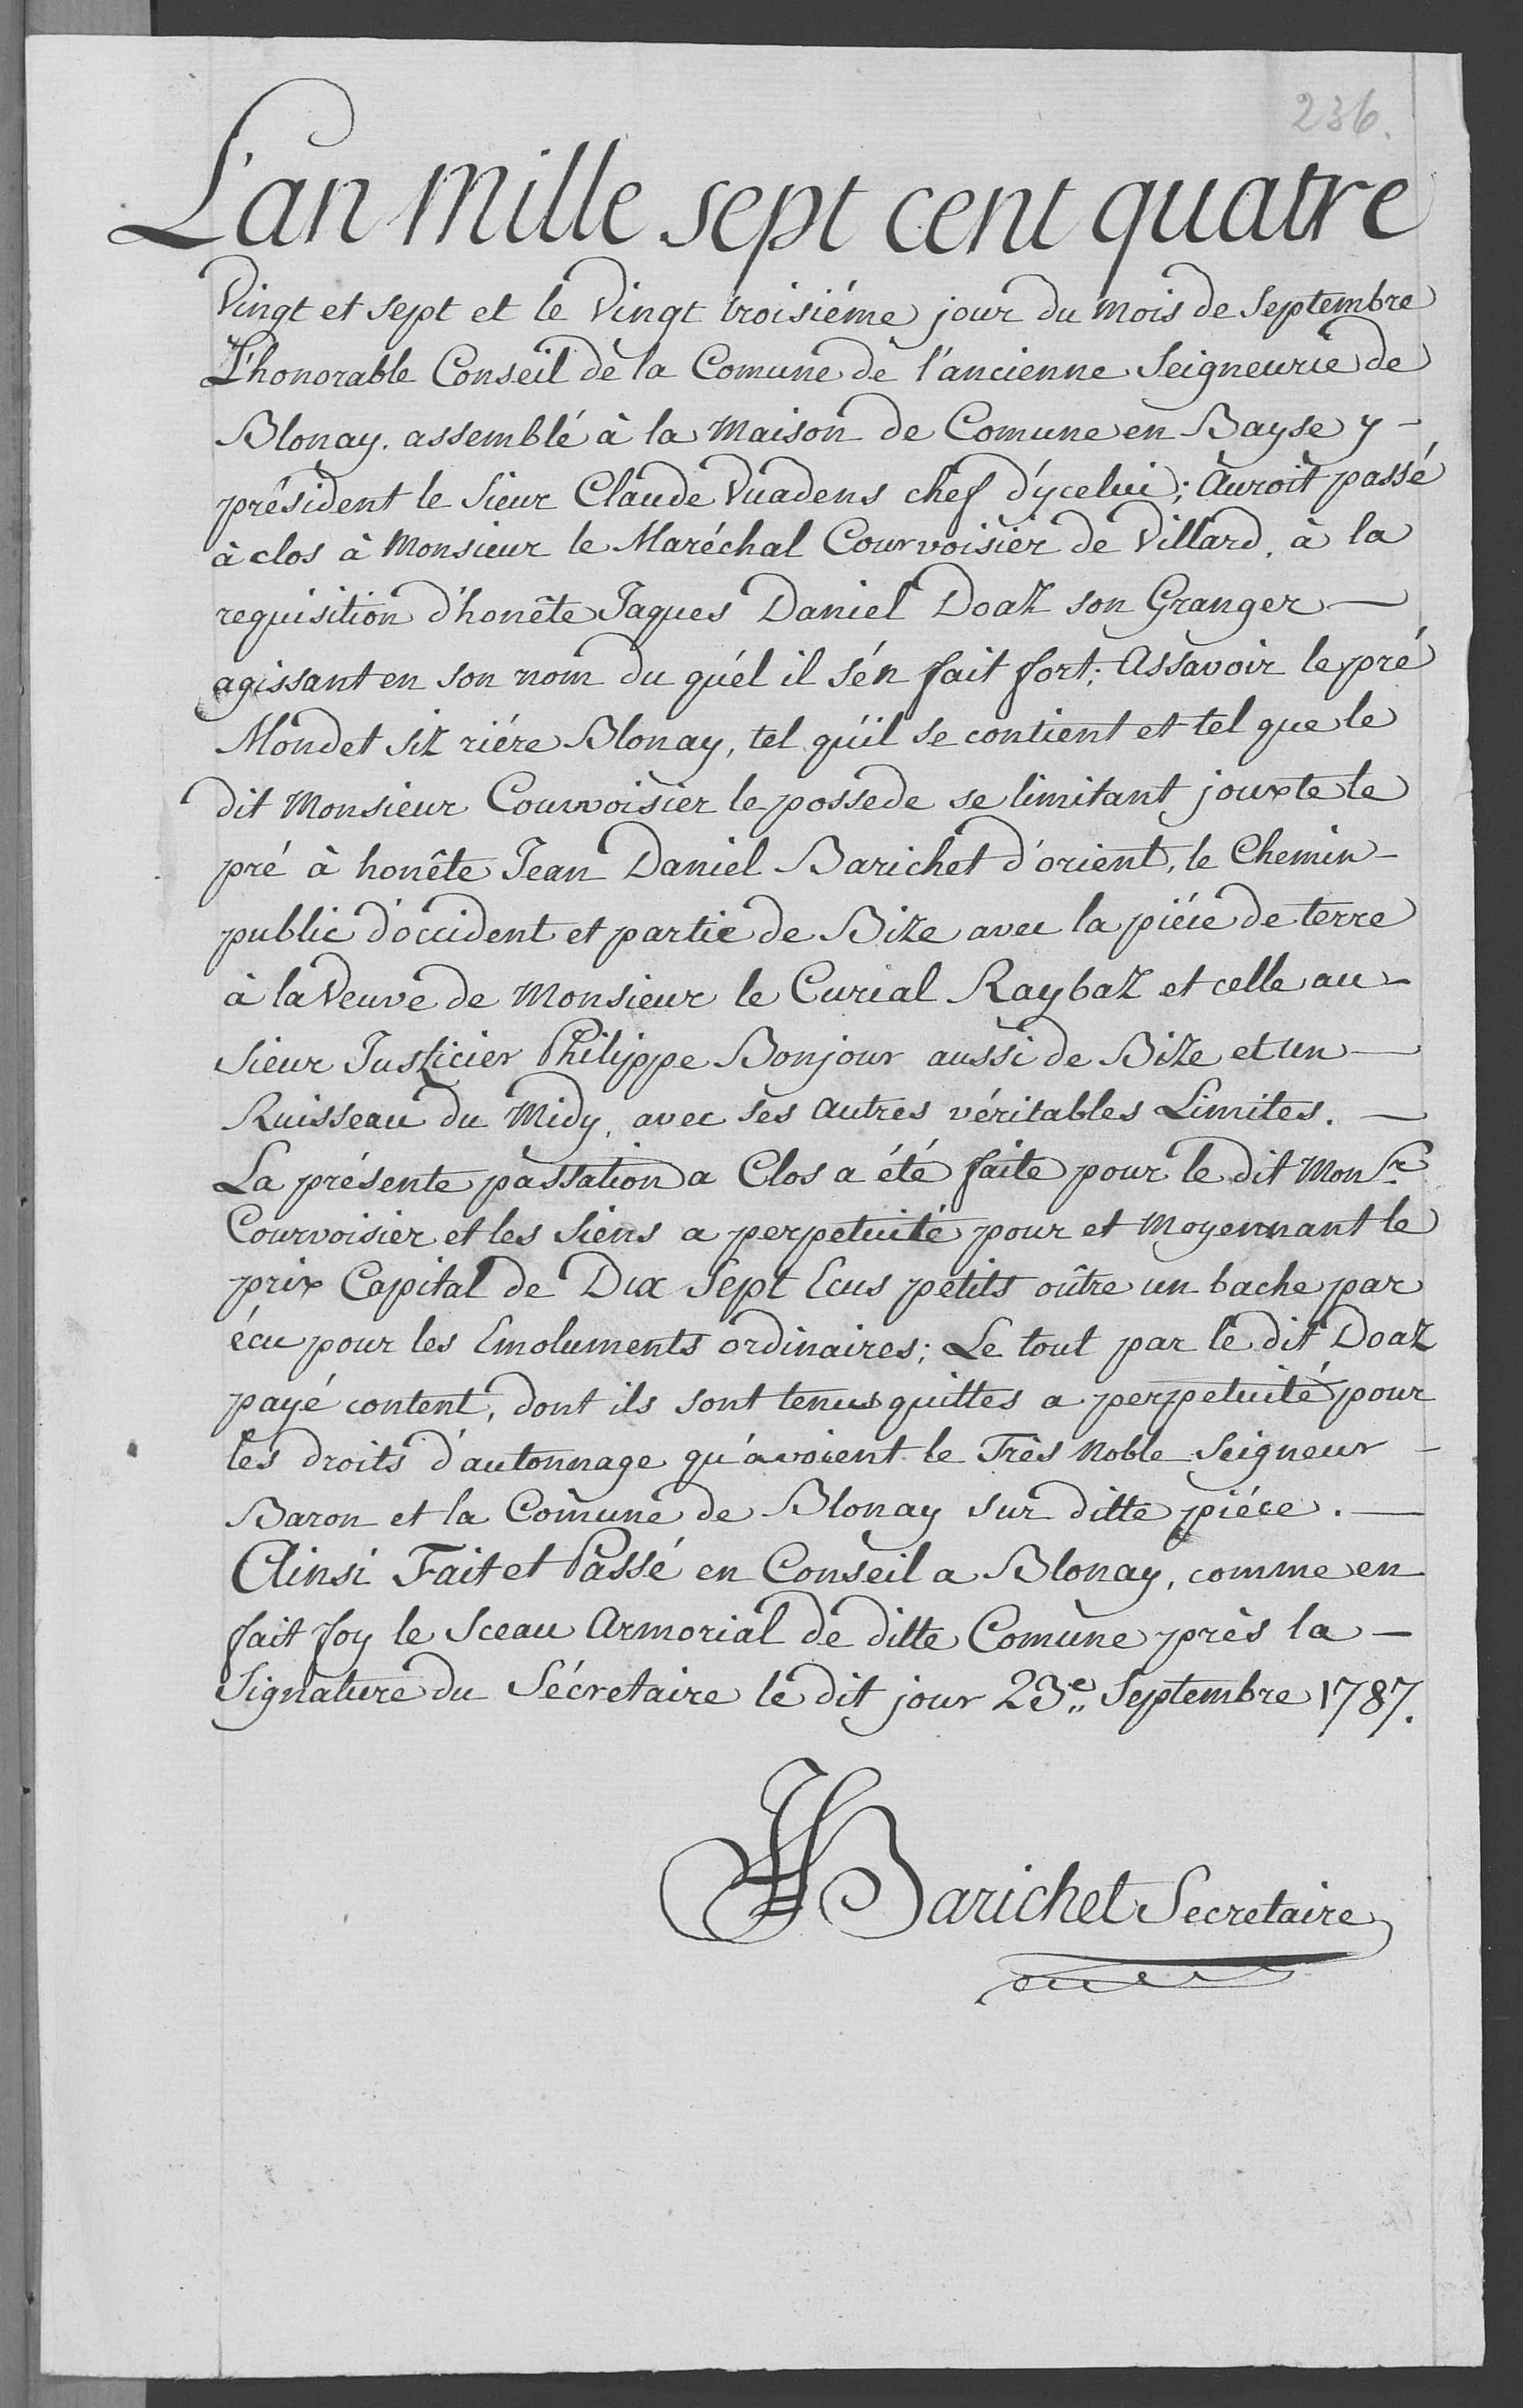 236.
L'an mille sept cent quatre
Vingt et sept et le Vingt troisiéme jour du mois de Septembre
L'honorable Conseil de la Comune de l'ancienne Seigneurie de
Blonay. assemblé à la Maison de Comune en Bayse y -
président le Sieur Claude Vuadens chef d'ycelui; Auroit passé
à clos à Monsieur le Maréchal Courvoisier de Villard, à la
requisition d'honête Jaques Daniel Doaz son Granger —
agissant en son nom du quél il s'én fait fort; Assavoir le pré
Mondet siz riére Blonay, tel qu'il se contient et tel que le
dit Monsieur Courvoisier le possede se limitant jouxte le
pré à honête Jean Daniel Barichet d'orient, le Chemin -
public d'occident et partie de Bize avec la piéce de terre
à la Veuve de Monsieur le Curial Raybaz et celle au -
Sieur Justicier Philippe Bonjour aussi de Bize et un —
Ruisseau du Midy, avec ses autres véritables Limites. —
La présente passation a Clos a été faite pour le dit Mon Sr.
Courvoisier et les Siens a perpetuité pour et moyennant le
prix Capital de Dix Sept Ecus petits oûtre un bache par
écu pour les Emoluments ordinaires; Le tout par le dit Doaz
payé content, dont ils sont tenus quittes a perpetuité pour
les droits d'autonnage qu'avoient le Très Noble Seigneur -
Baron et la Comune de Blonay sur ditte piéce. —
Ainsi Fait et Passé en Conseil a Blonay, comme en
fait foy le Sceau Armorial de ditte Comune près la —
Signature du Sécretaire le dit jour 23e. Septembre 1787.
Barichet Secretaire